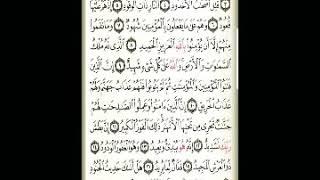 قُتِلَ أَصْحَٰبُ ٱلْأُخْدُودِ ٤ ٱلنَّارِ ذَاتِ ٱلْوَقُودِ ٥ إِذْ هُمْ عَلَيْهَا
قُعُودٌ ٦ وَهُمْ عَلَىٰ مَا يَفْعَلُونَ بِٱلْمُؤْمِنِينَ شُهُودٌ ٧ وَمَا نَقَمُوا۟
مِنْهُمْ إِلَّآ أَن يُؤْمِنُوا۟ بِٱللَّهِ ٱلْعَزِيزِ ٱلْحَمِيدِ ٨ ٱلَّذِى لَهُۥ مُلْكُ
ٱلسَّمَٰوَٰتِ وَٱلْأَرْضِ وَٱللَّهُ عَلَىٰ كُلِّ شَىْءٍ شَهِيدٌ ٩ إِنَّ ٱلَّذِينَ
فَتَنُوا۟ ٱلْمُؤْمِنِينَ وَٱلْمُؤْمِنَٰتِ ثُمَّ لَمْ يَتُوبُوا۟ فَلَهُمْ عَذَابُ جَهَنَّمَ وَلَهُمْ
عَذَابُ ٱلْحَرِيقِ ١٠ إِنَّ ٱلَّذِينَ ءَامَنُوا۟ وَعَمِلُوا۟ ٱلصَّٰلِحَٰتِ لَهُمْ
جَنَّٰتٌ تَجْرِى مِن تَحْتِهَا ٱلْأَنْهَٰرُ ذَٰلِكَ ٱلْفَوْزُ ٱلْكَبِيرُ ١١ إِنَّ بَطْشَ
رَبِّكَ لَشَدِيدٌ ١٢ إِنَّهُۥ هُوَ يُبْدِئُ وَيُعِيدُ ١٣ وَهُوَ ٱلْغَفُورُ ٱلْوَدُودُ ١٤
ذُو ٱلْعَرْشِ ٱلْمَجِيدُ ١٥ فَعَّالٌ لِّمَا يُرِيدُ ١٦ هَلْ أَتَىٰكَ حَدِيثُ ٱلْجُنُودِ